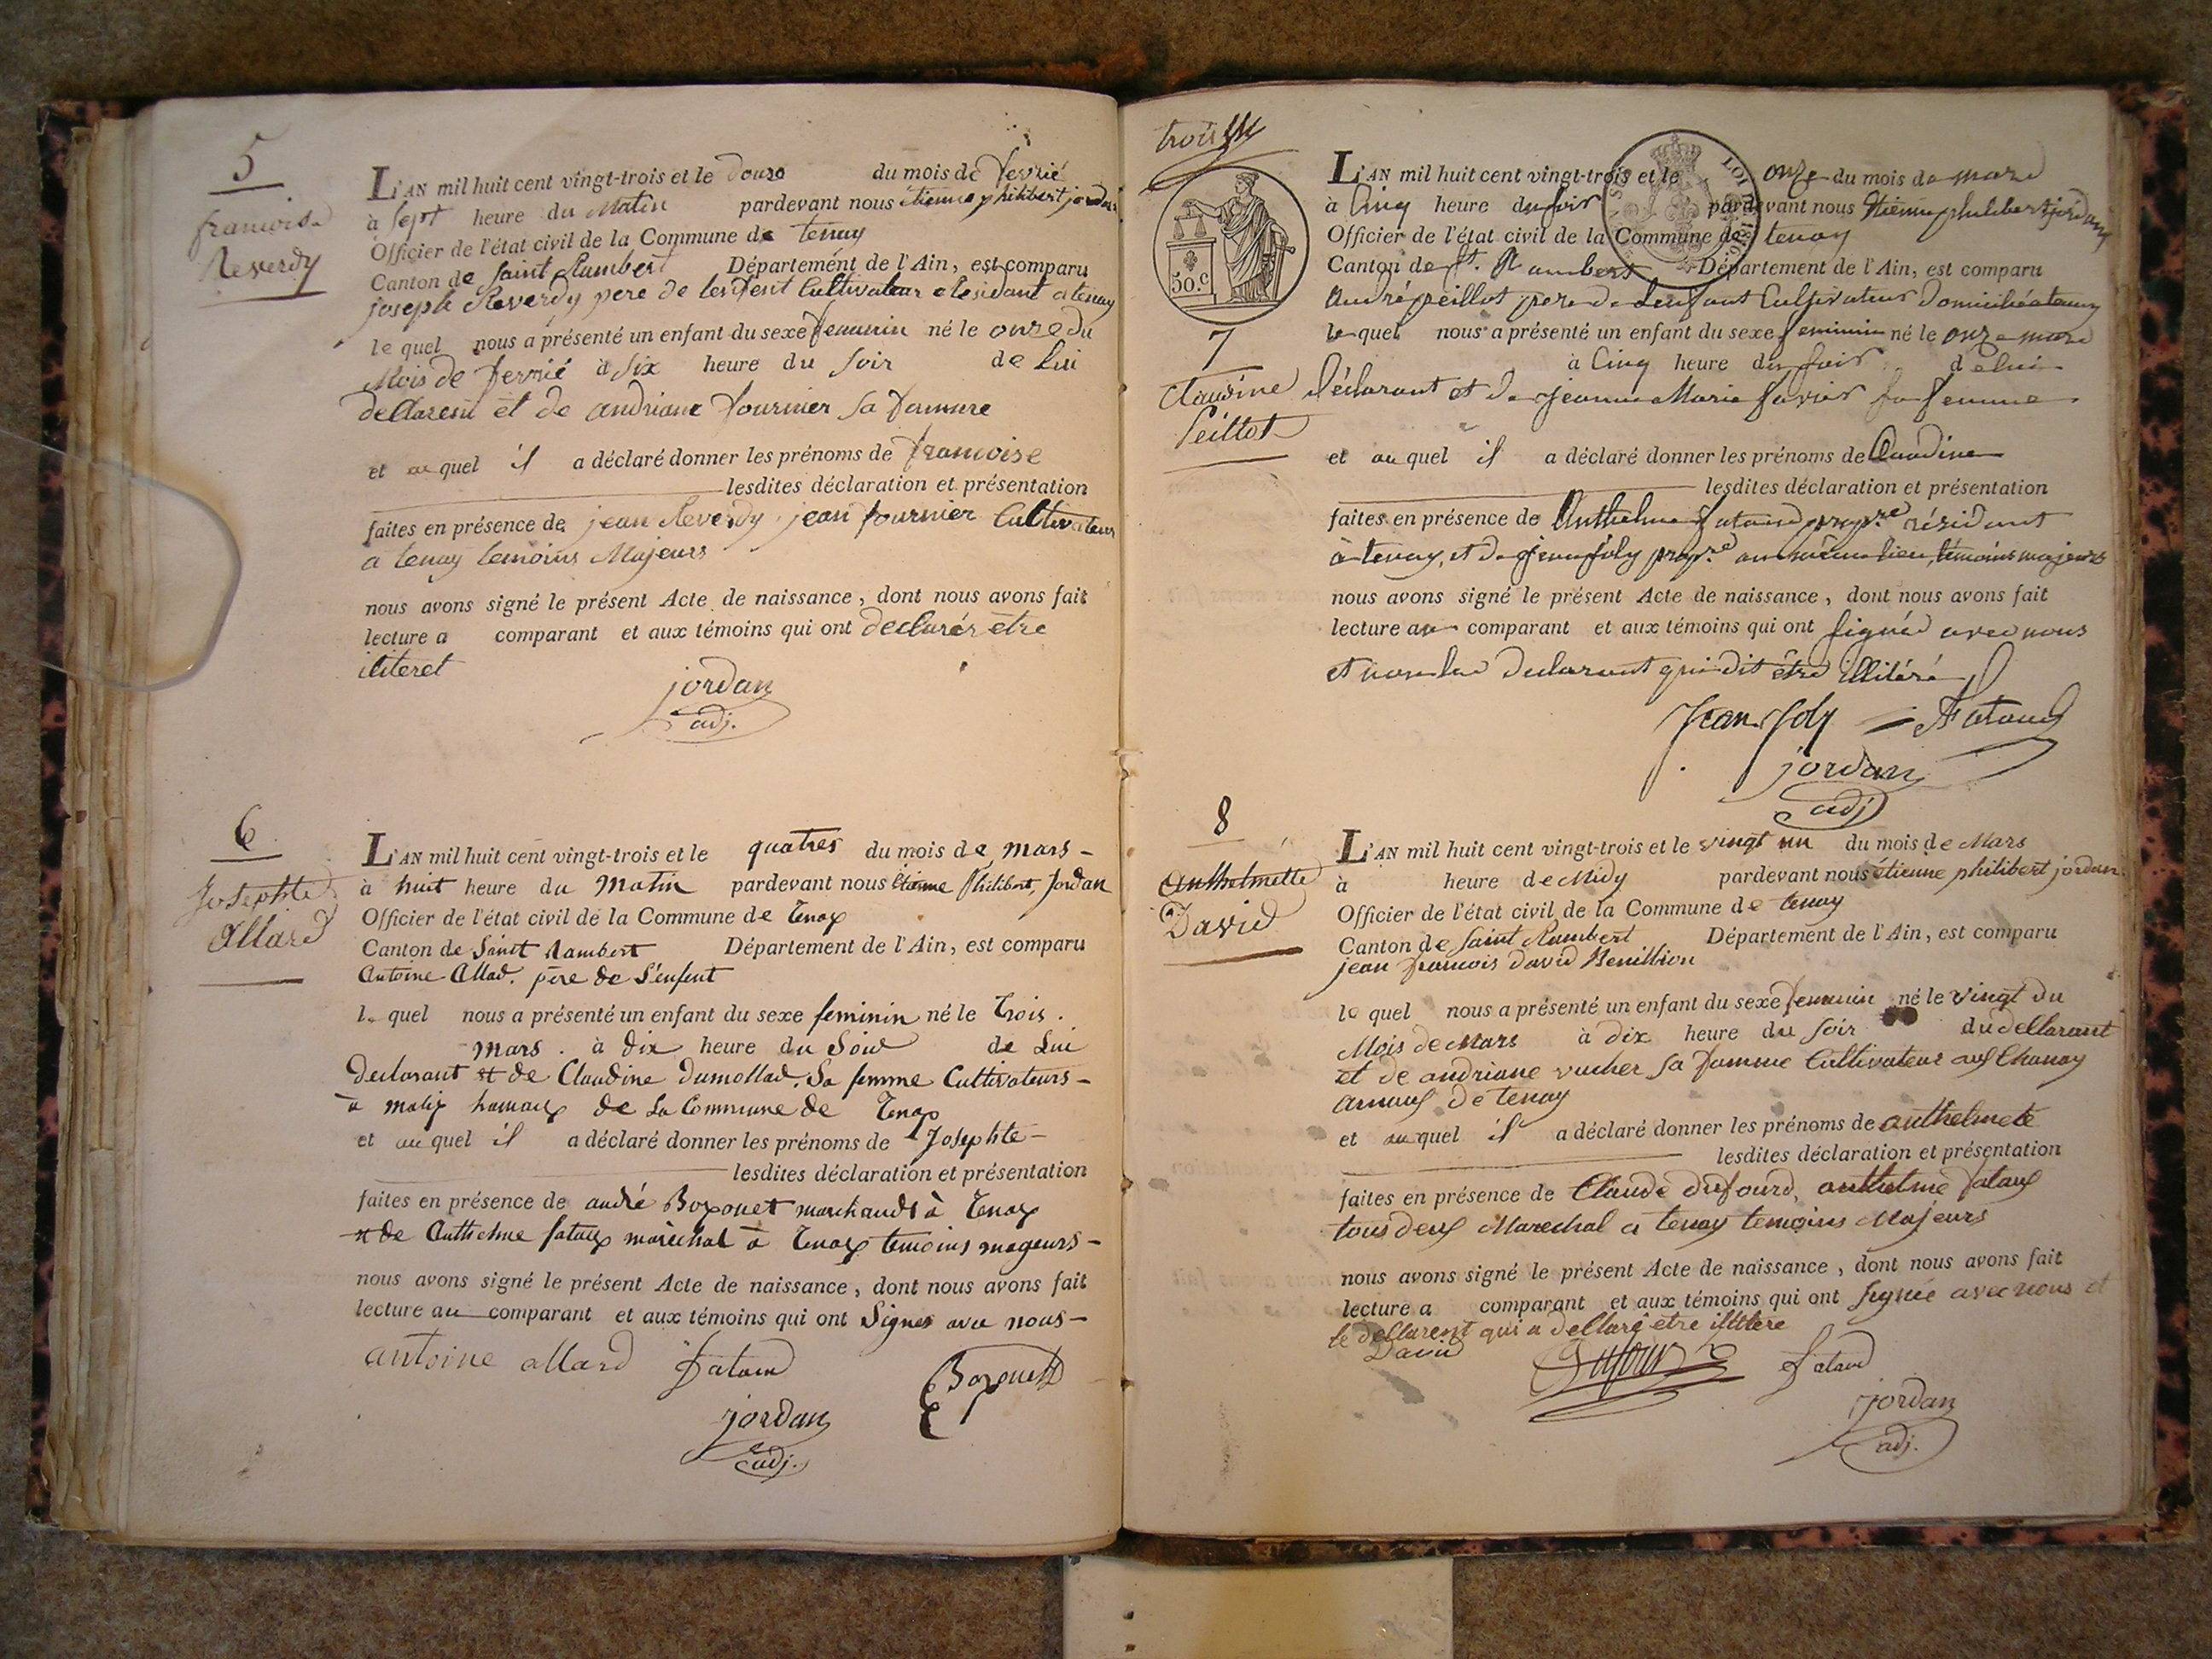 5
francoise
Reverdy
L'AN mil huit cent vingt-trois et le douze du mois de fevrié
à sept heure du Matin pardevant nous étienne philibert jordan
Officier de l'état civil de la Commune de tenay
Canton de Saint Rambert Département de l'Ain, est comparu
joseph Reverdy pere de lenfent Cultivateur residant a tenay
le quel nous a présenté un enfant du sexe femenin né le onze du
Mois de fevrié à six heure du soir de lui
declarent et de andriane fournier sa famme
et au quel il a déclaré donner les prénoms de francoise
lesdites déclaration et présentation
faites en présence de jean Reverdy jean fournier Cultivateur
a tenay temoins Majeurs
nous avons signé le présent Acte de naissance, dont nous avons fait
lecture a comparant et aux témoins qui ont declarér etre
iliteret
jordan
adj.
6
Josephte
Allard
L'AN mil huit cent vingt-trois et le quatres du mois de mars
à huit heure du Matin pardevant nous Etienne Philibert Jordan
Officier de l'état civil de la Commune de Tenay
Canton de Saint Rambert Département de l'Ain, est comparu
Antoine Allad. père de L'enfent
le quel nous a présenté un enfant du sexe feminin né le Trois.
mars. à dix heure du Soir de Lui
declarant et de Claudine dumollad. Sa femme Cultivateurs
à hamaux de La Commune de Tenay
et au quel il a déclaré donner les prénoms de Josephte
lesdites déclaration et présentation
faites en présence de andré Bozonet marchands à Tenay
et de Anthelme fataux maréchal à Tenay temoins mageurs
nous avons signé le présent Acte de naissance, dont nous avons fait
lecture au comparant et aux témoins qui ont Signes avec nous
antoine allard fataud Bozonet
jordan
adj.
trois
50.C
LOI
7
Claudine
Peillot
L'AN mil huit cent vingt-trois et le onze du mois de mars
à Cinq heure du soir pardevant nous Etienne philibert jordan
Officier de l'état civil de la Commune de tenay
Canton de St. Rambert Département de l'Ain, est comparu
André peillot pere de Lenfant Cultivateur domicilié a tenay
le quel nous a présenté un enfant du sexe feminin né le onze mars
à Cinq heure du soir de lui
déclarant et de jeanne Marie savier sa femme
et au quel il a déclaré donner les prénoms de Claudine
lesdites déclaration et présentation
faites en présence de Anthelme fataud propre résidant
à tenay, et de jean joly propre au même lieu, témoins majeurs
nous avons signé le présent Acte de naissance, dont nous avons fait
lecture au comparant et aux témoins qui ont signé avec nous
et non le declarant qui dit être illitéré
Jean Joly Fataud
jordan
adj
8
Anthelmette
David
L'AN mil huit cent vingt-trois et le vingt un du mois de Mars
à heure de Midy pardevant nous étienne philibert jordan
Officier de l'état civil de la Commune de tenay
Canton de Saint Rambert Département de l'Ain, est comparu
jean francois david
le quel nous a présenté un enfant du sexe femenin né le vingt du
Mois de Mars à dix heure du soir du declarant
et de andriane vucher sa famme Cultivateur aux Chanay
de tenay
et au quel il a déclaré donner les prénoms de anthelmete
lesdites déclaration et présentation
faites en présence de Claude dufourd, anthelme fataux
tous deux Marechal a tenay temoins Majeurs
nous avons signé le présent Acte de naissance, dont nous avons fait
lecture a comparant et aux témoins qui ont signée avec nous et
le declarent qui a declaré etre illitere
David
Dufour fataud
jordan
adj.